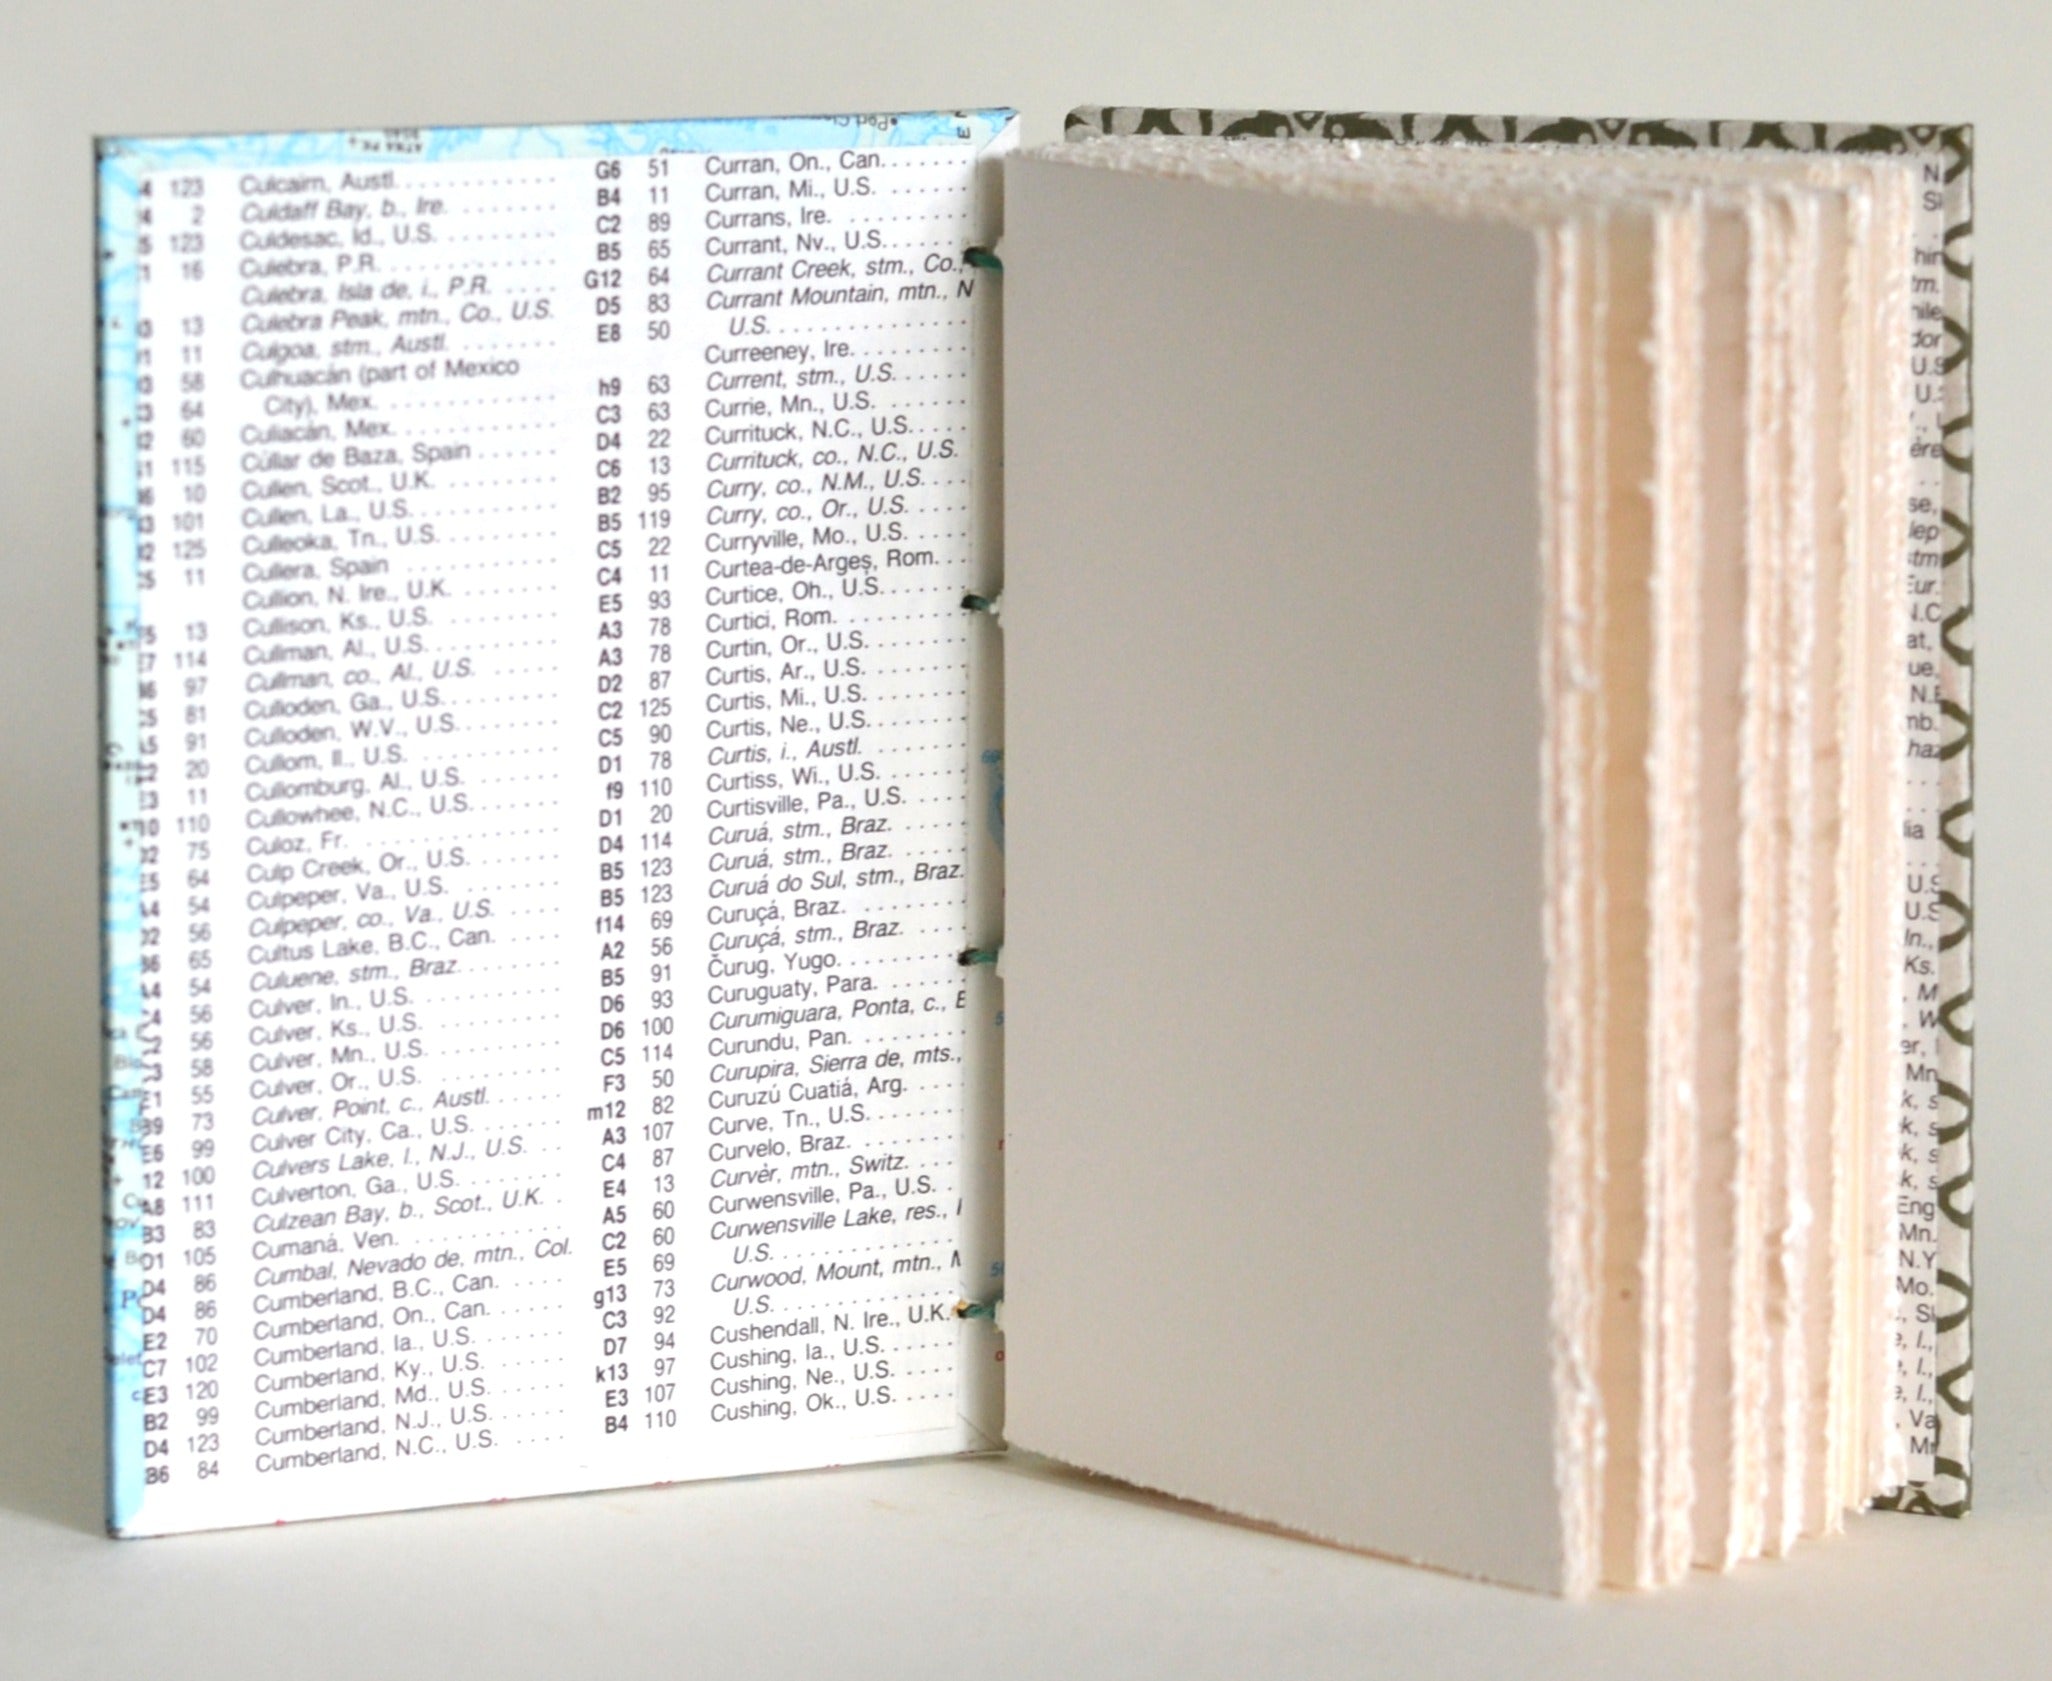 123
2
123
16
13
11
58
64
60
115
10
101
125
11
13
114
97
81
91
20
11
110
75
64
54
56
65
54
56
56
58
55
73
99
12 100
111
B3 83
D1 105
D4 86
D4 86
E2 70
C7 102
E3 120
B2 99
D4 123
B6 84
Culcairn, Austl.
Culdaff Bay, b., Ire.
Culdesac, Id., U.S.
Culebra, P.R.
Culebra, Isla de, i., P.R.
Culebra Peak, mtn., Co., U.S.
Culgoa, stm., Austl.
Culhuacán (part of Mexico
City), Mex.
Culiacán, Mex.
Cúllar de Baza, Spain
Cullen, Scot., U.K.
Cullen, La., U.S.
Culleoka, Tn., U.S.
Cullera, Spain
Cullion, N. Ire., U.K.
Cullison, Ks., U.S.
Cullman, Al., U.S.
Cullman, co., Al., U.S.
Culloden, Ga., U.S.
Culloden, W.V., U.S.
Cullom, Il., U.S.
Cullomburg, Al., U.S.
Cullowhee, N.C., U.S.
Culoz, Fr.
Culp Creek, Or., U.S.
Culpeper, Va., U.S.
Culpeper, co., Va., U.S.
Cultus Lake, B.C., Can.
Culuene, stm., Braz.
Culver, In., U.S.
Culver, Ks., U.S.
Culver, Mn., U.S.
Culver, Or., U.S.
Culver, Point, c., Austl.
Culver City, Ca., U.S.
Culvers Lake, l., N.J., U.S.
Culverton, Ga., U.S.
Culzean Bay, b., Scot., U.K.
Cumaná, Ven.
Cumbal, Nevado de, mtn., Col.
Cumberland, B.C., Can.
Cumberland, On., Can.
Cumberland, Ia., U.S.
Cumberland, Ky., U.S.
Cumberland, Md., U.S.
Cumberland, N.J., U.S.
Cumberland, N.C., U.S.
G6 51
B4 11
C2 89
B5 65
G12 64
D5 83
E8 50
h9 63
C3 63
D4 22
C6 13
B2 95
B5 119
C5 22
C4 11
E5 93
A3 78
A3 78
D2 87
C2 125
C5 90
D1 78
f9 110
D1 20
D4 114
B5 123
B5 123
f14 69
A2 56
B5 91
D6 93
D6 100
C5 114
F3 50
m12 82
A3 107
C4 87
E4 13
A5 60
C2 60
E5 69
g13 73
C3 92
D7 94
k13 97
E3 107
B4 110
Curran, On., Can.
Curran, Mi., U.S.
Currans, Ire.
Currant, Nv., U.S.
Currant Creek, stm., Co.,
Currant Mountain, mtn., N
U.S.
Curreeney, Ire.
Current, stm., U.S.
Currie, Mn., U.S.
Currituck, N.C., U.S.
Currituck, co., N.C., U.S.
Curry, co., N.M., U.S.
Curry, co., Or., U.S.
Curryville, Mo., U.S.
Curtea-de-Argeş, Rom.
Curtice, Oh., U.S.
Curtici, Rom.
Curtin, Or., U.S.
Curtis, Ar., U.S.
Curtis, Mi., U.S.
Curtis, Ne., U.S.
Curtis, i., Austl.
Curtiss, Wi., U.S.
Curtisville, Pa., U.S.
Curuá, stm., Braz.
Curuá, stm., Braz.
Curuá do Sul, stm., Braz.
Curuçá, Braz.
Curuçá, stm., Braz.
Čurug, Yugo.
Curuguaty, Para.
Curumiguara, Ponta, c., B
Curundu, Pan.
Curupira, Sierra de, mts.,
Curuzú Cuatiá, Arg.
Curve, Tn., U.S.
Curvelo, Braz.
Curvèr, mtn., Switz.
Curwensville, Pa., U.S.
Curwensville Lake, res.,
U.S.
Curwood, Mount, mtn.,
U.S.
Cushendall, N. Ire., U.K.
Cushing, Ia., U.S.
Cushing, Ne., U.S.
Cushing, Ok., U.S.